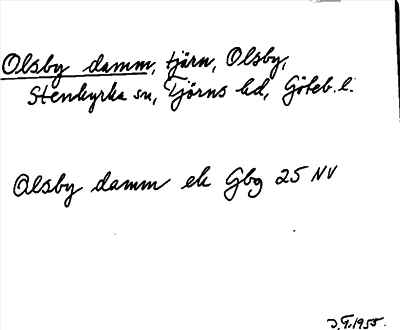 Olsby damm, tjärn, Olsby,
Stenkyrka sn, Tjörns hd, Göteb. l.
Olsby damm ek Gbg 25 NV
J.G. 1955.